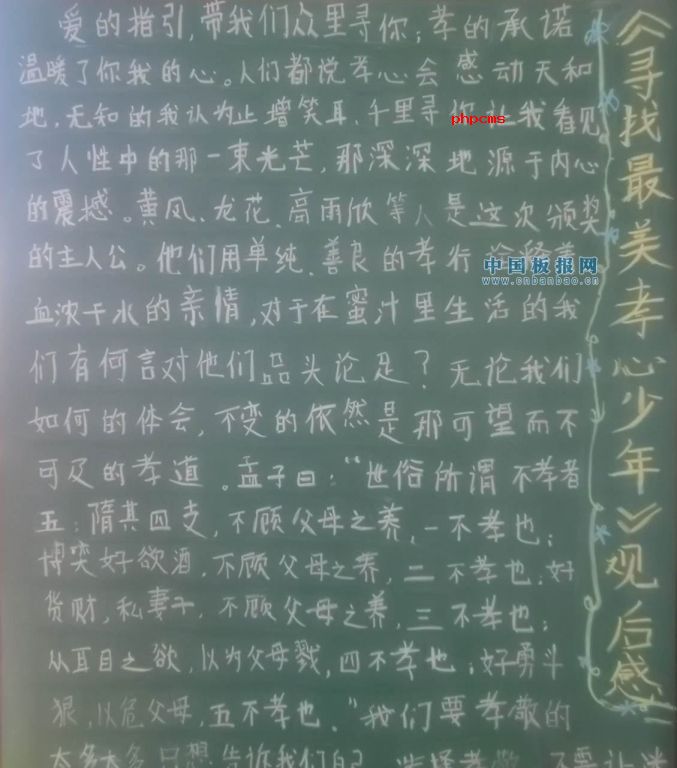 《寻找最美孝心少年》观后感
爱的指引,带我们众里寻你;孝的承诺
温暖了你我的心。人们都说孝心会感动天和
地,无知的我认为止增笑耳,千里寻你让我看见
phpcms
了人性中的那一束光芒,那深深地源于内心
的震撼。黄凤、龙花、高雨欣等人是这次颁奖
的主人公。他们用单纯、善良的孝行
中国板报网
www.cnbanbao.cn
血浓于水的亲情,对于在蜜汁里生活的我
们有何言对他们品头论足?无论我们
如何的体会,不变的依然是那可望而不
可及的孝道。孟子曰:“世俗所谓不孝者
五:隋其四支,不顾父母之养,一不孝也;
博奕好欲酒,不顾父母之养,二不孝也;好
货财,私妻子,不顾父母之养,三不孝也;
从耳目之欲,以为父母戮,四不孝也;好勇斗
狠,以危父母,五不孝也。”我们要孝敬的
太多太多,只想告诉我们自己